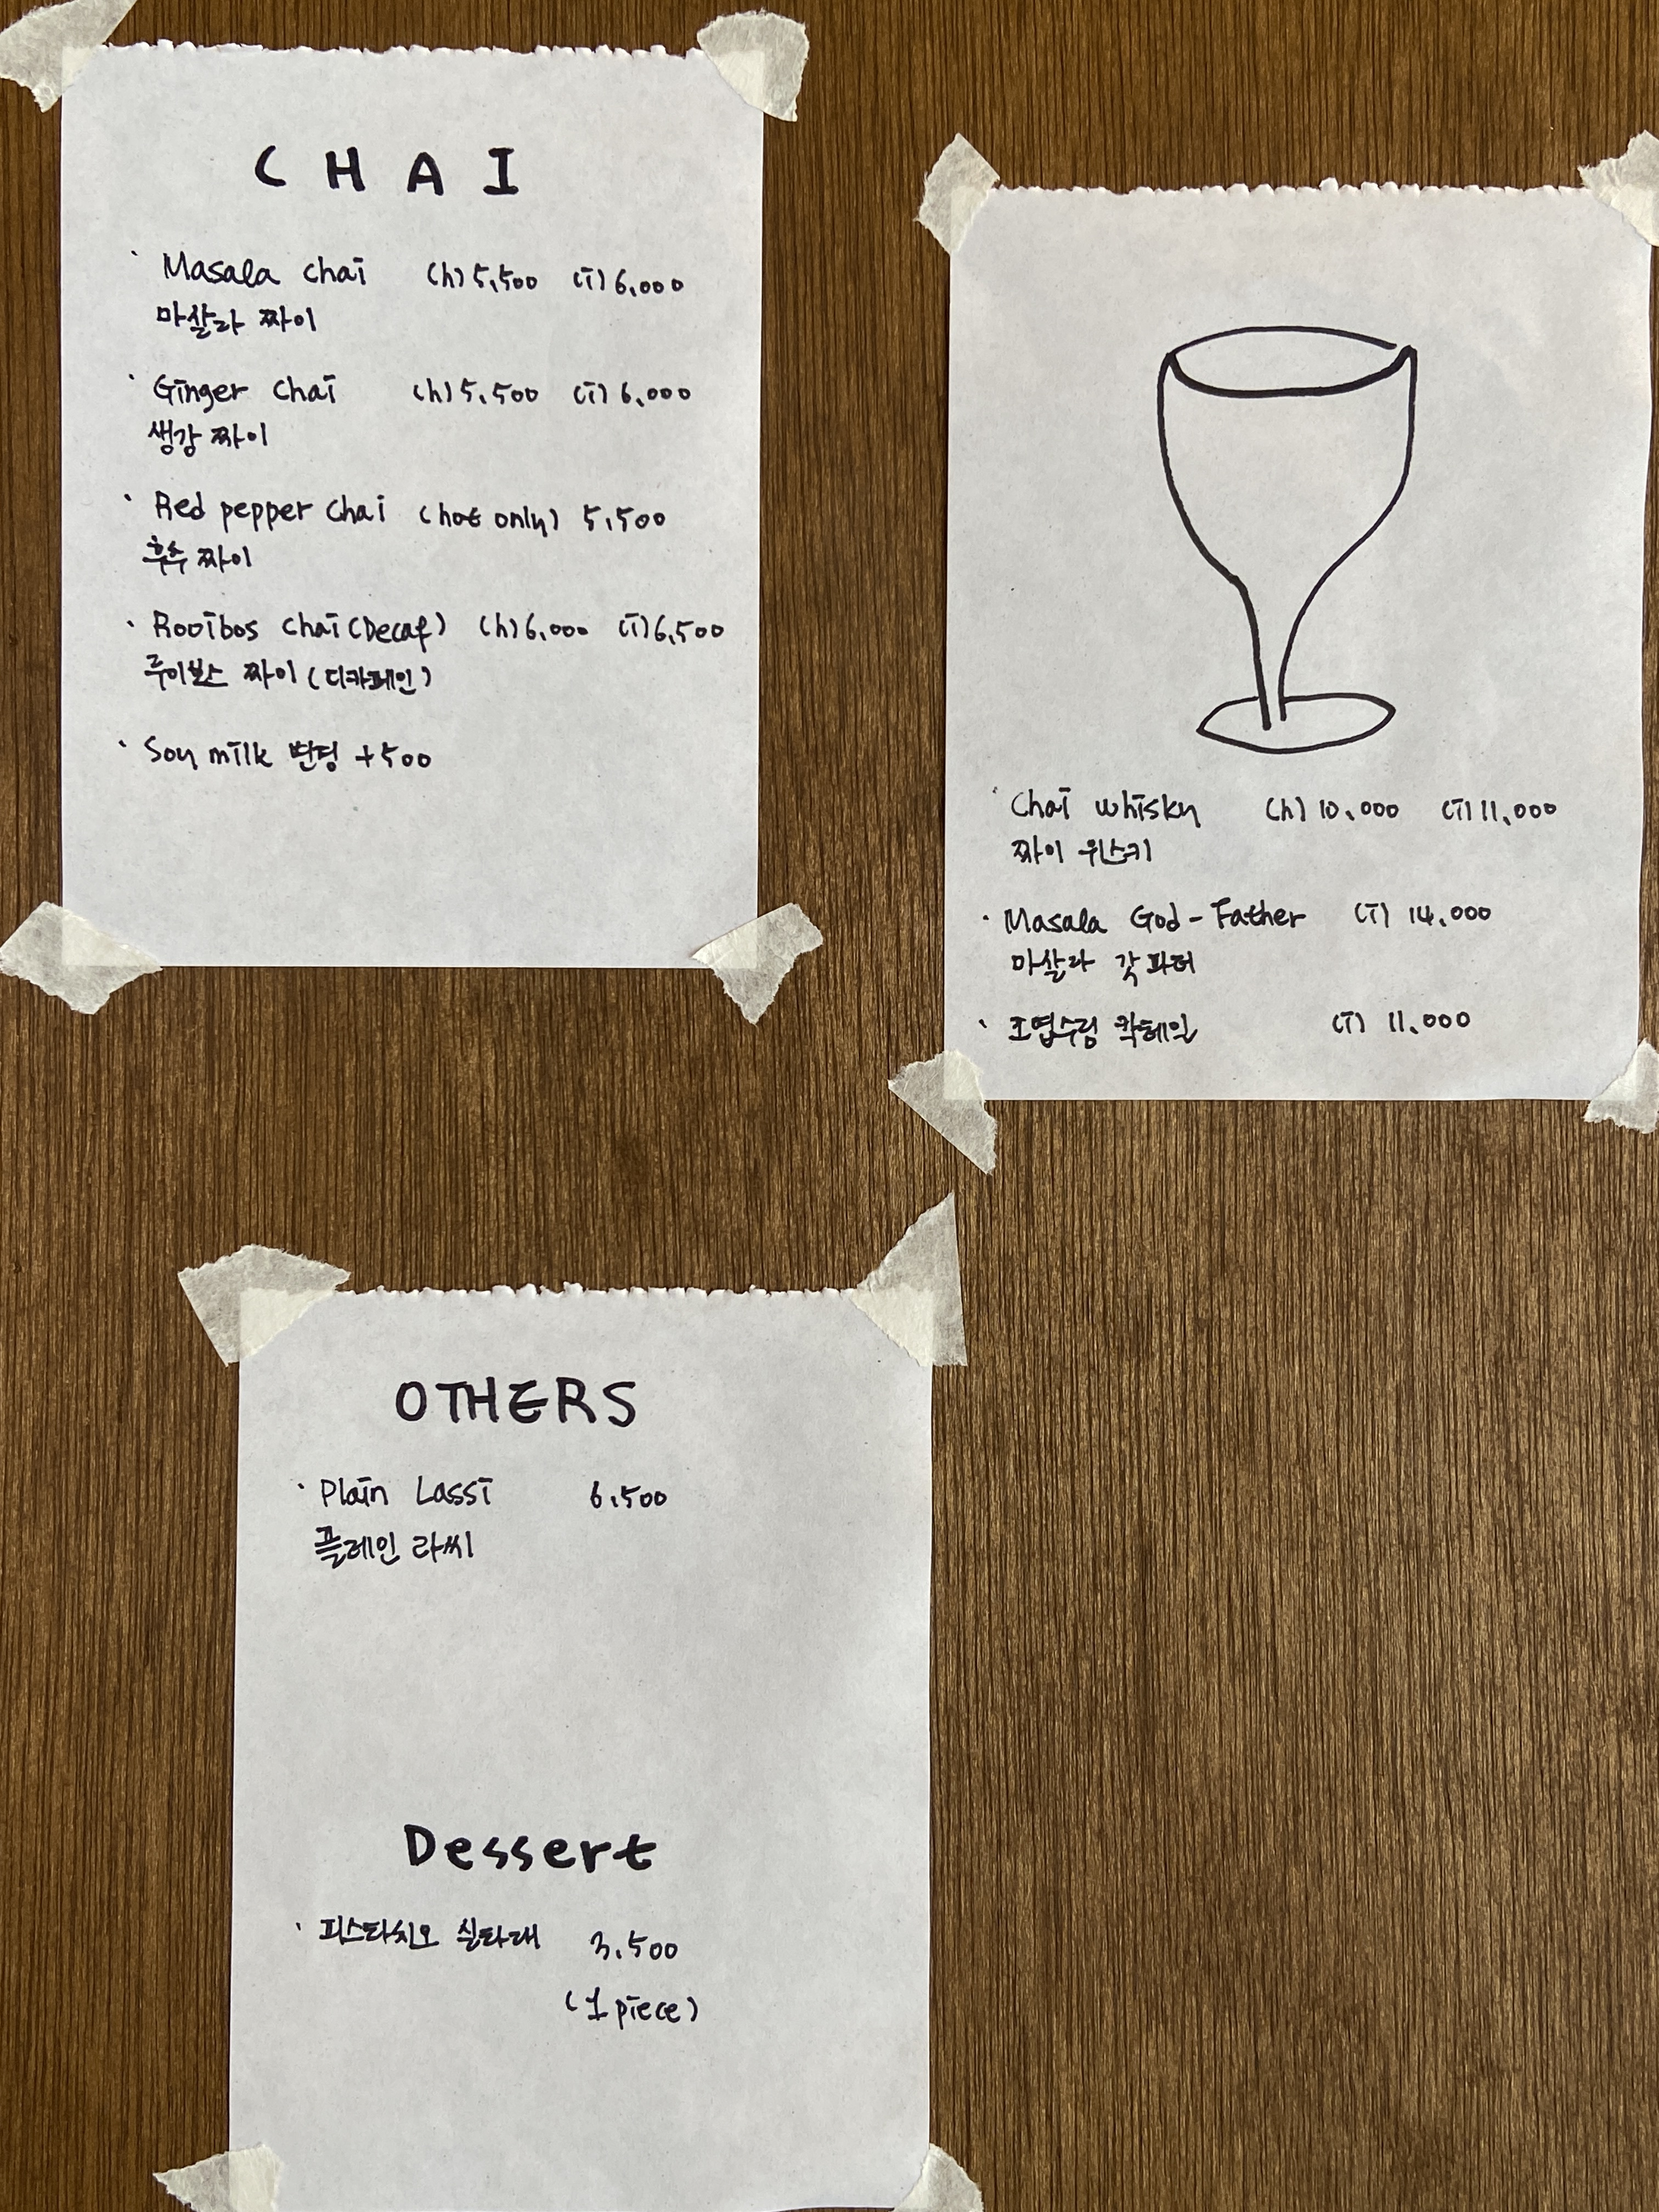 CHAI
· Masala chai (h) 5,500 (i) 6,000
마살라 짜이
· Ginger chai (h) 5,500 (i) 6,000
생강 짜이
· Red pepper chai (hot only) 5,500
후추 짜이
· Rooibos chai (Decaf) (h) 6,000 (i) 6,500
루이보스 짜이 (디카페인)
· Soy milk 변경 +500
· Chai whisky (h) 10,000 (i) 11,000
짜이 위스키
· Masala God-Father (i) 14,000
마살라 갓파더
· 조엽수림 칵테일 (i) 11,000
OTHERS
· Plain Lassi 6,500
플레인 라씨
Dessert
· 피스타치오 실타래 3,500
(1 piece)